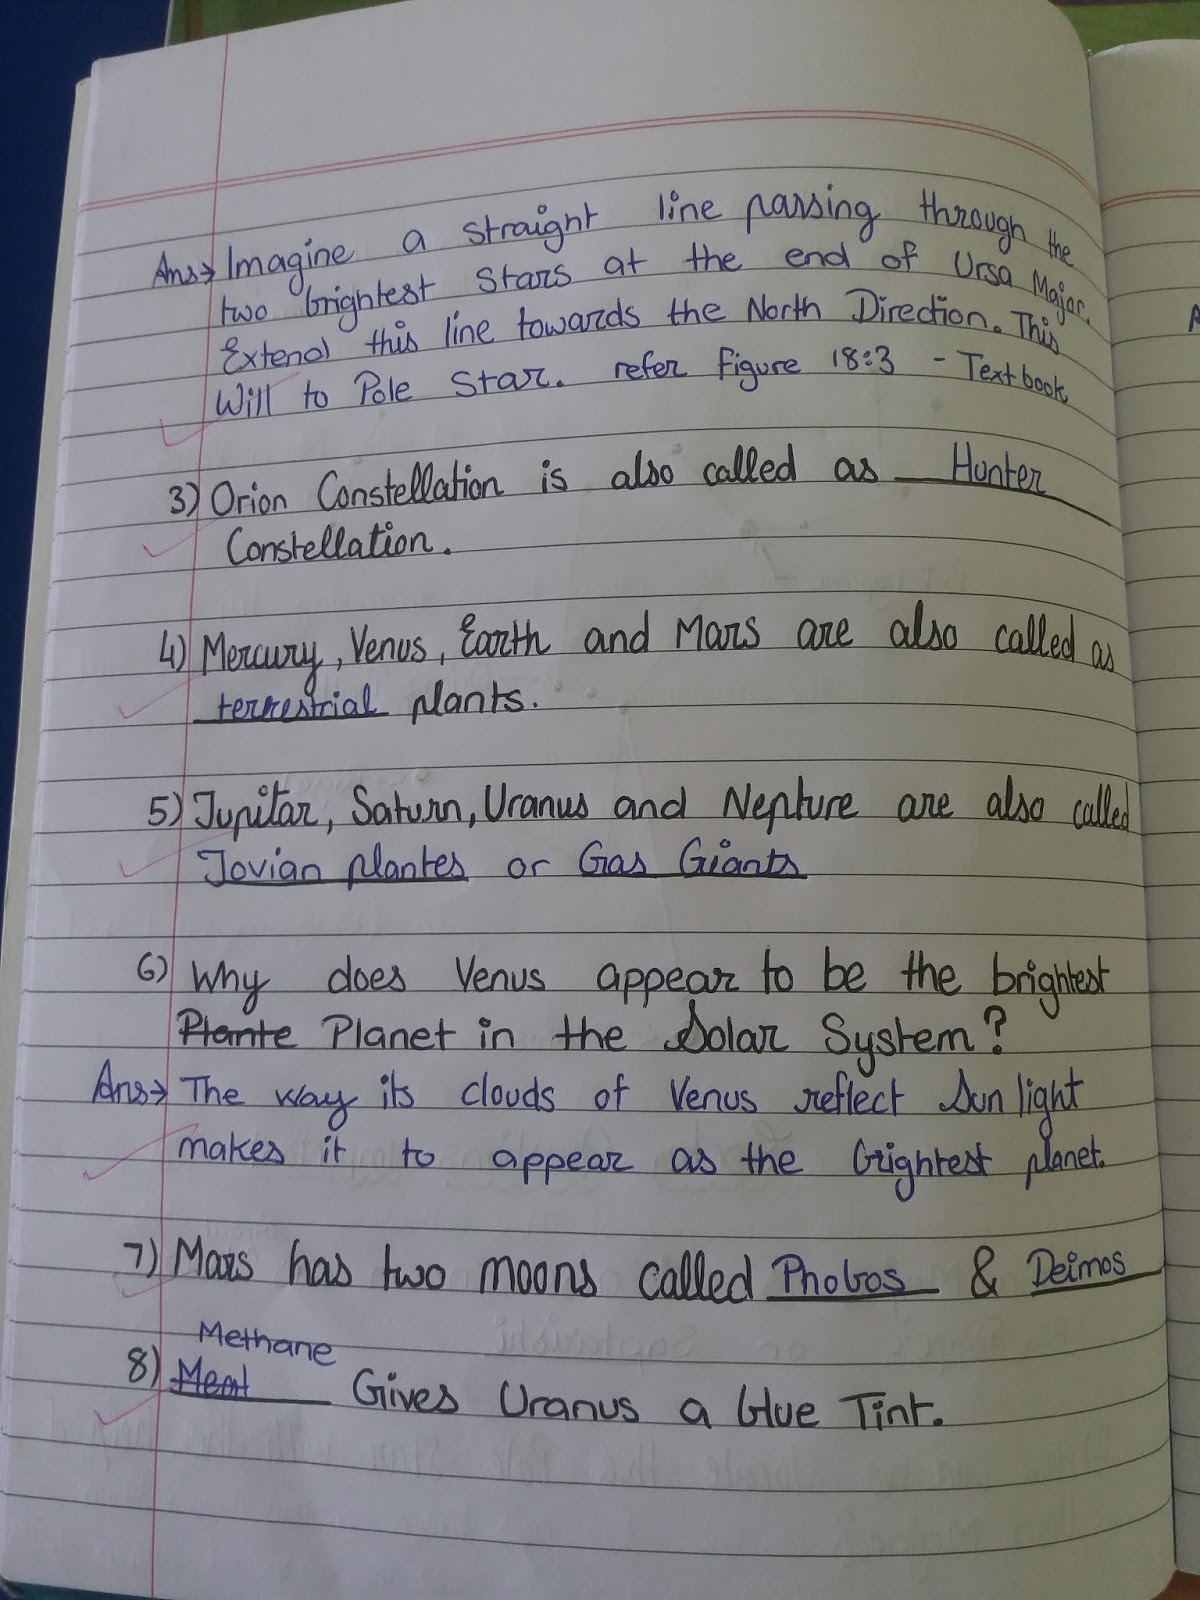 Ans→ Imagine a straight line passing through the
two brightest Stars at the end of Ursa Major.
Extend this line towards the North Direction. This
Will to Pole Star. refer figure 18:3 - Textbook
3) Orion Constellation is also called as Hunter
Constellation.
4) Mercury, Venus, Earth and Mars are also called as
terrestrial plants.
5) Jupitar, Saturn, Uranus and Nepture are also called
Jovian plantes or Gas Giants
6) Why does Venus appear to be the brightest
Plante Planet in the Solar System?
Ans→ The way its clouds of Venus reflect Sun light
makes it to appear as the brightest planet.
7) Mars has two moons called Phobos & Deimos
Methane
8) Meat Gives Uranus a blue Tint.